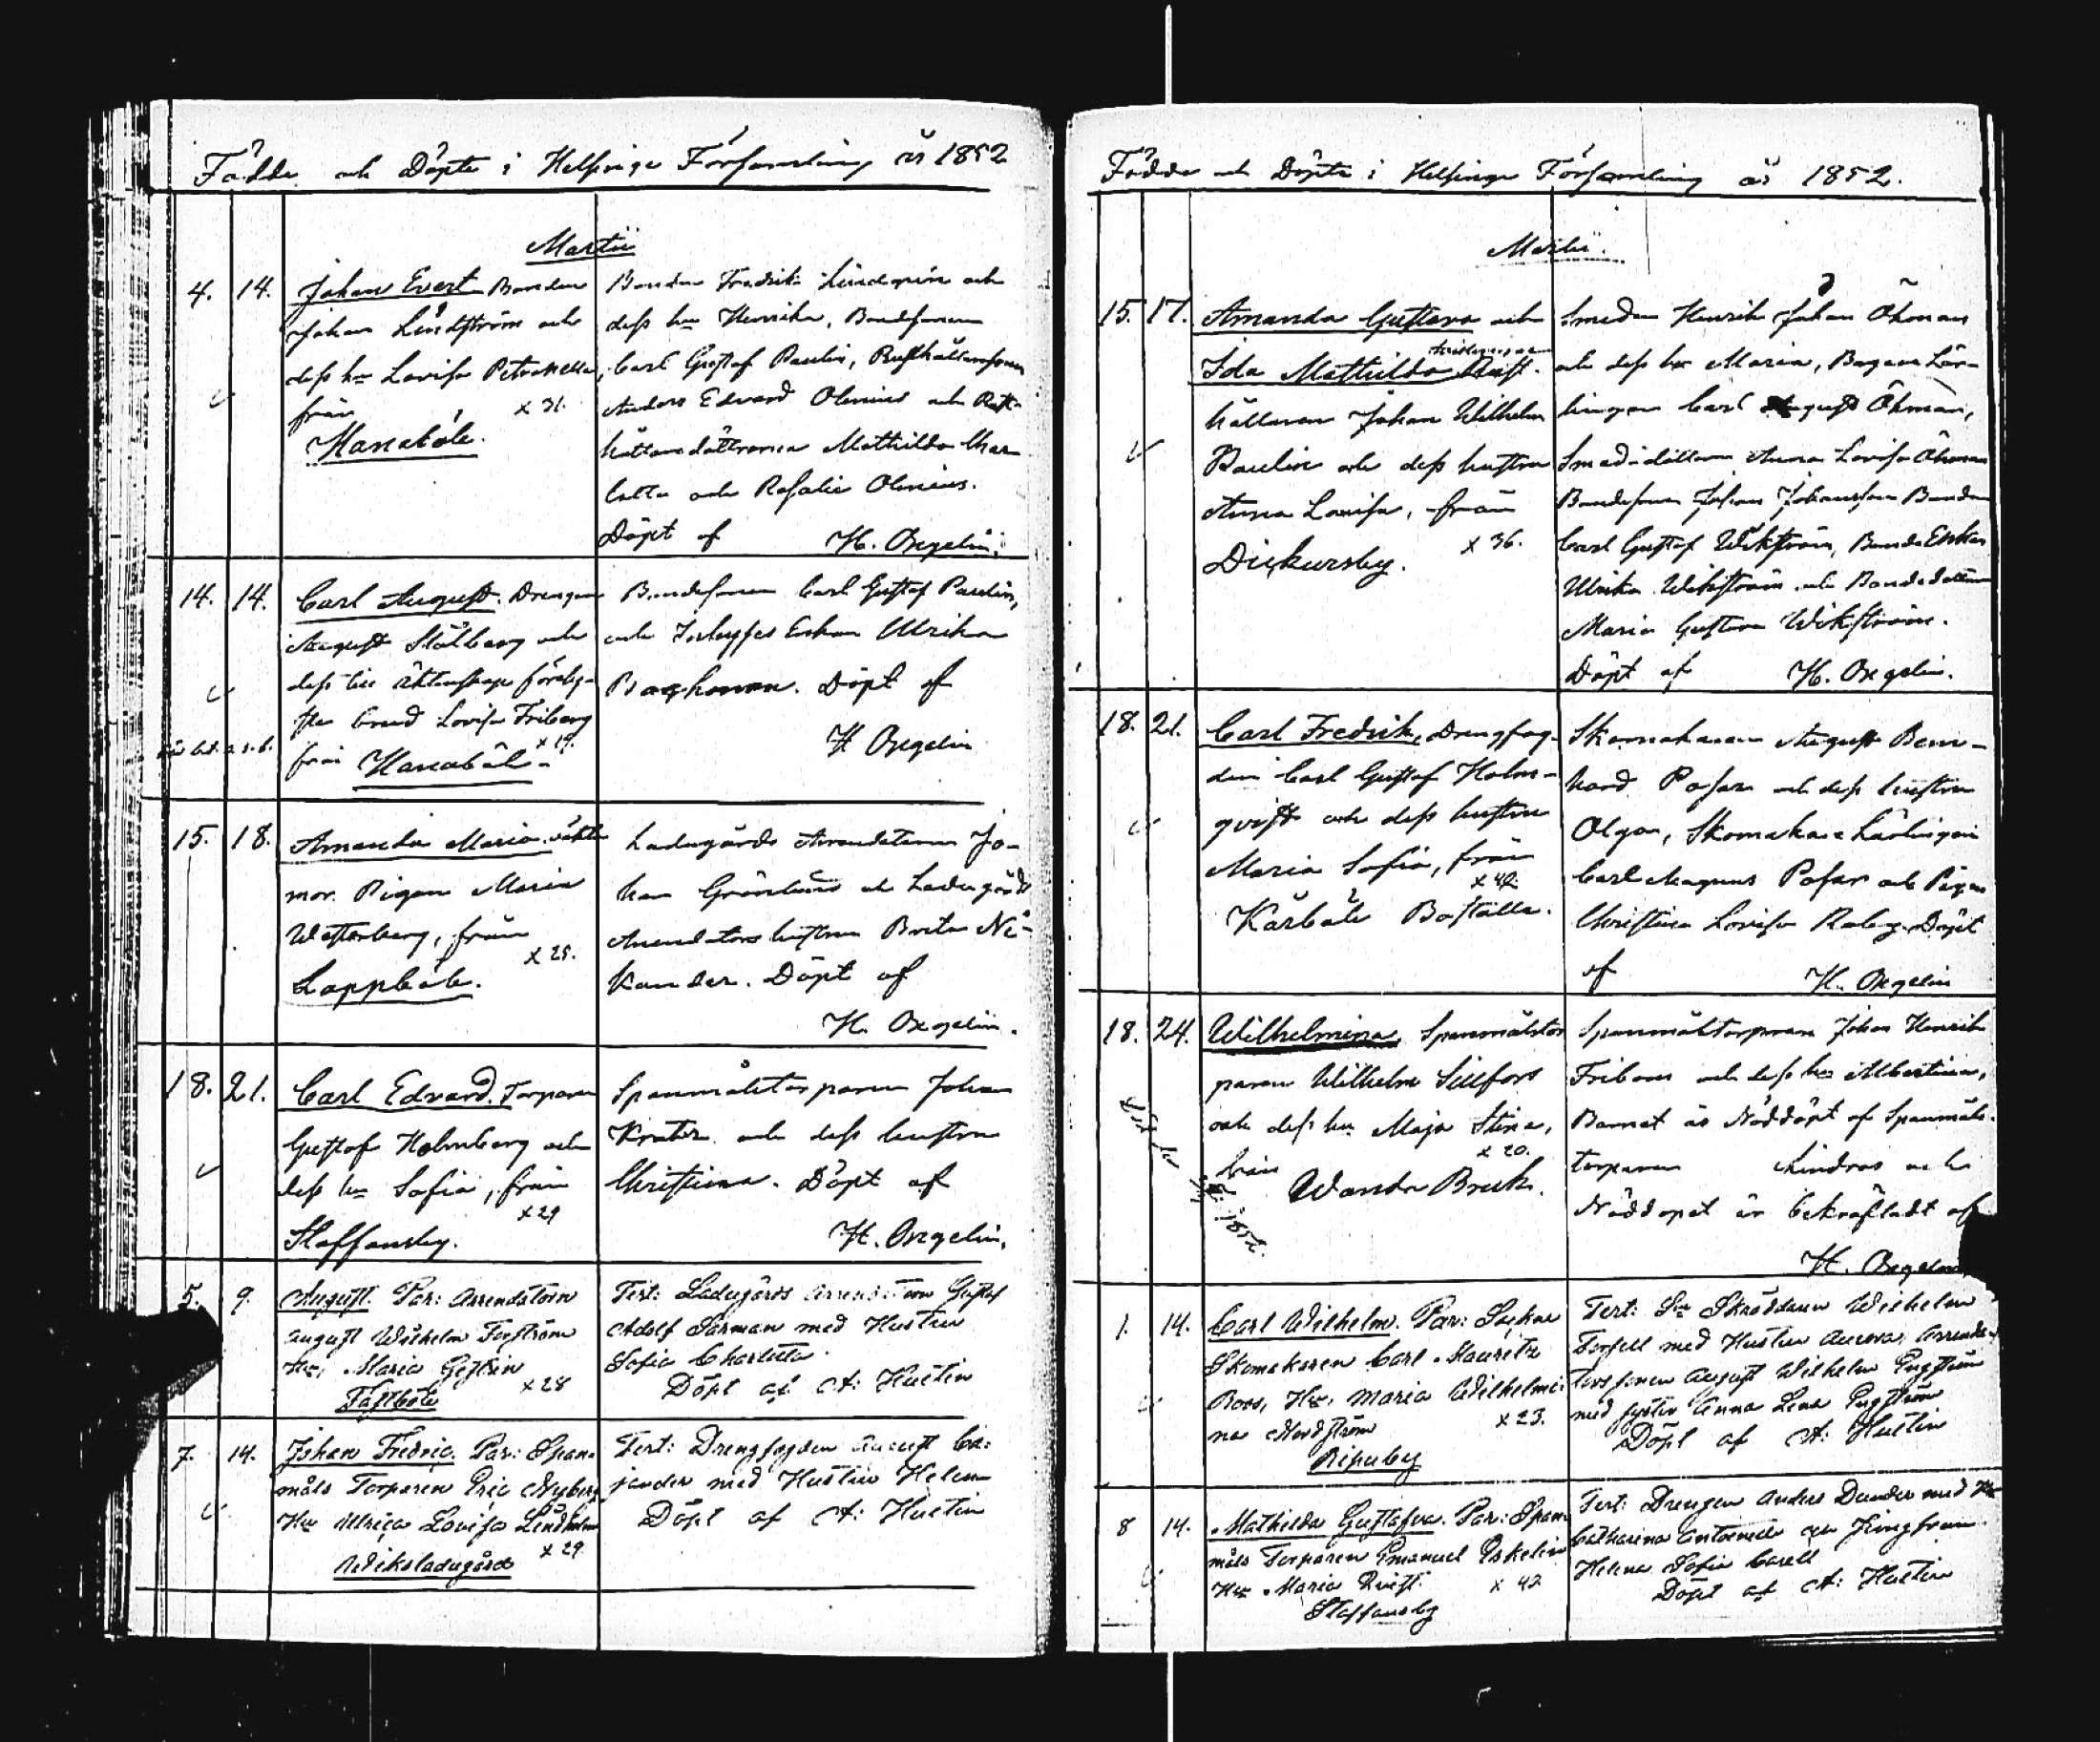 Födde och Döpte i Helsinge Församling år 1852
Martii
4. 14. Johan Evert Bonden
Johan Lindström och
dess hu Lovisa Petronella,
från x 31.
Hanaböle.
Bonden Fredrik Lindqvin och
dess hu Henrika, Bondsonen
Carl Gustaf Paulin, Rusthållarsonen
Anders Edvard Olenius och Rust-
hållaredöttrarna Mathilda Char
lotta och Rosalie Olenius.
Döpt af H. Oxgelin.
14. 14. Carl August. Drengen
August Stålberg och
dess till äktenskap föreg-
Lovisa Friberg
från Hanaböl x 19.
Bondesonen Carl Gustaf Paulin,
och Enkan Ulrika
Baghoman. Döpt af
H Oxgelin
15. 18. Amanda Maria.
mor. Pigan Maria
Westerberg, från
x 25.
Lappböle.
Ladugårds Arrendatorn Jo-
han Grönlund och Ladugårds
Arrendators hustrun Brita Ni-
kander. Döpt af
H. Oxgelin.
18. 21. Carl Edvard. Torparen
Gustaf Holmberg och
dess hu Sofia, från
x 29
Staffansby.
Spanmålstorparen Johan
och dess hustru
Christina. Döpt af
H. Oxgelin.
5. 9. August. Par: Arrendatorn
August Wilhelm Forström
Hu, Maria
x 28
Fastböle
Test: Ladugårds Arrendatorn Gustaf
Adolf Sarman med Hustru
Sofia Charlotta.
Döpt af A: Hustin
7. 14. Johan Fredric. Par: Span-
måls Torparen Eric Nyberg
Hu Ulrica Lovisa Lindholm
x 29.
Wiksladugård
Test: Drengfogden August Ca-
jander med Hustru Helena
Döpt af A: Hustin
Födde och Döpte i Helsinge Församling år 1852.
Martii.
15. 17. Amanda Gustava och
Ida Mathilda Rust-
hållaren Johan Wilhelm
Paulin och dess hustru
Anna Lovisa, från
x 36.
Dickursby.
Smeden Henrik Johan Öhman
och dess hu Maria, Bagare Lär-
lingen Carl August Öhman,
Smedsdottern Anna Lovisa Öhman
Bondesonen Johan Johansson Bonden
Carl Gustaf Wikström, Bonde Enkan
Ulrika Wikström och Bondedottern
Maria Gustava Wikström.
Döpt af H. Oxgelin.
18. 21. Carl Fredrik, Drengfog-
den Carl Gustaf Holm-
qvist och dess hustru
Maria Sofia, från
x 42
Kårböle Boställe.
Skomakaren August Bern-
hard Posar och dess hustru
Olga, Skomakare Lärlingen
Carl Magnus Posar och Pigan
Christina Lovisa Döpt
af H. Oxgelin
18. 24. Wilhelmina, Spanmålstor
paren Wilhelm Sillfors
och dess hu Maja Stina,
x 20.
från Wanda Bruk.
1852.
Spanmålstorparen Johan Henrik
Friborn och dess hu Albertina,
Barnet är Nöddöpt af Spanmåls-
torparen Lindros och
Nöddopet är bekräftadt af
H. Oxgelin
1. 14. Carl Wilhelm. Par: Socken
Skomakaren Carl Mauritz
Roos, Hu, Maria Wilhelmi-
na Nordström x 23.
Ripuby
Test: Skräddaren Wilhelm
Forsell med Hustru Aurora, Arrenda-
torssonen August Wilhelm Engström
med syster Anna Lena Engström
Döpt af A: Hustin
8 14. Mathilda Gustafva. Par: Span-
måls Torparen Emanuel Eskelin
Hu Maria Qvist. x 42
Staffansby
Test: Drengen Anders Dunder med Hu
Catharina Antoinette och Jungfrun
Helena Sofia Carell
Döpt af A: Hustin